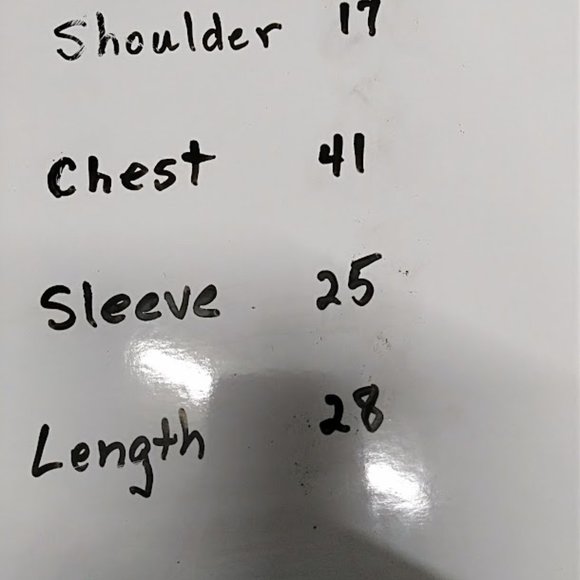 Shoulder 17
Chest 41
Sleeve 25
Length 28